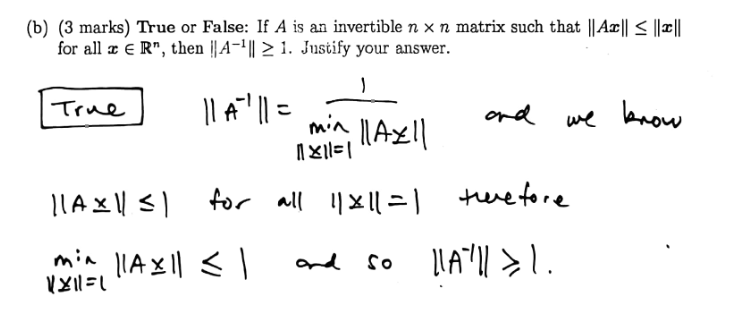 (b) (3 marks) True or False: If A is an invertible n × n matrix such that ||Ax|| ≤ ||x||
for all x ∈ Rⁿ, then ||A⁻¹|| ≥ 1. Justify your answer.
True ||A⁻¹|| = 1 / min ||x||=1 ||Ax|| and we know
||Ax|| ≤ 1 for all ||x|| = 1 therefore
min ||x||=1 ||Ax|| ≤ 1 and so ||A⁻¹|| ≥ 1.